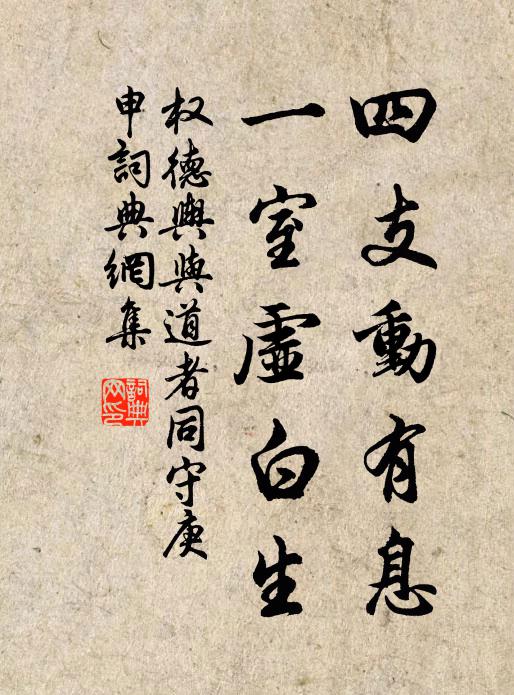 四支動有息
一室虛白生
权德輿與道者同守庚
申詞典網集
詞典
网印